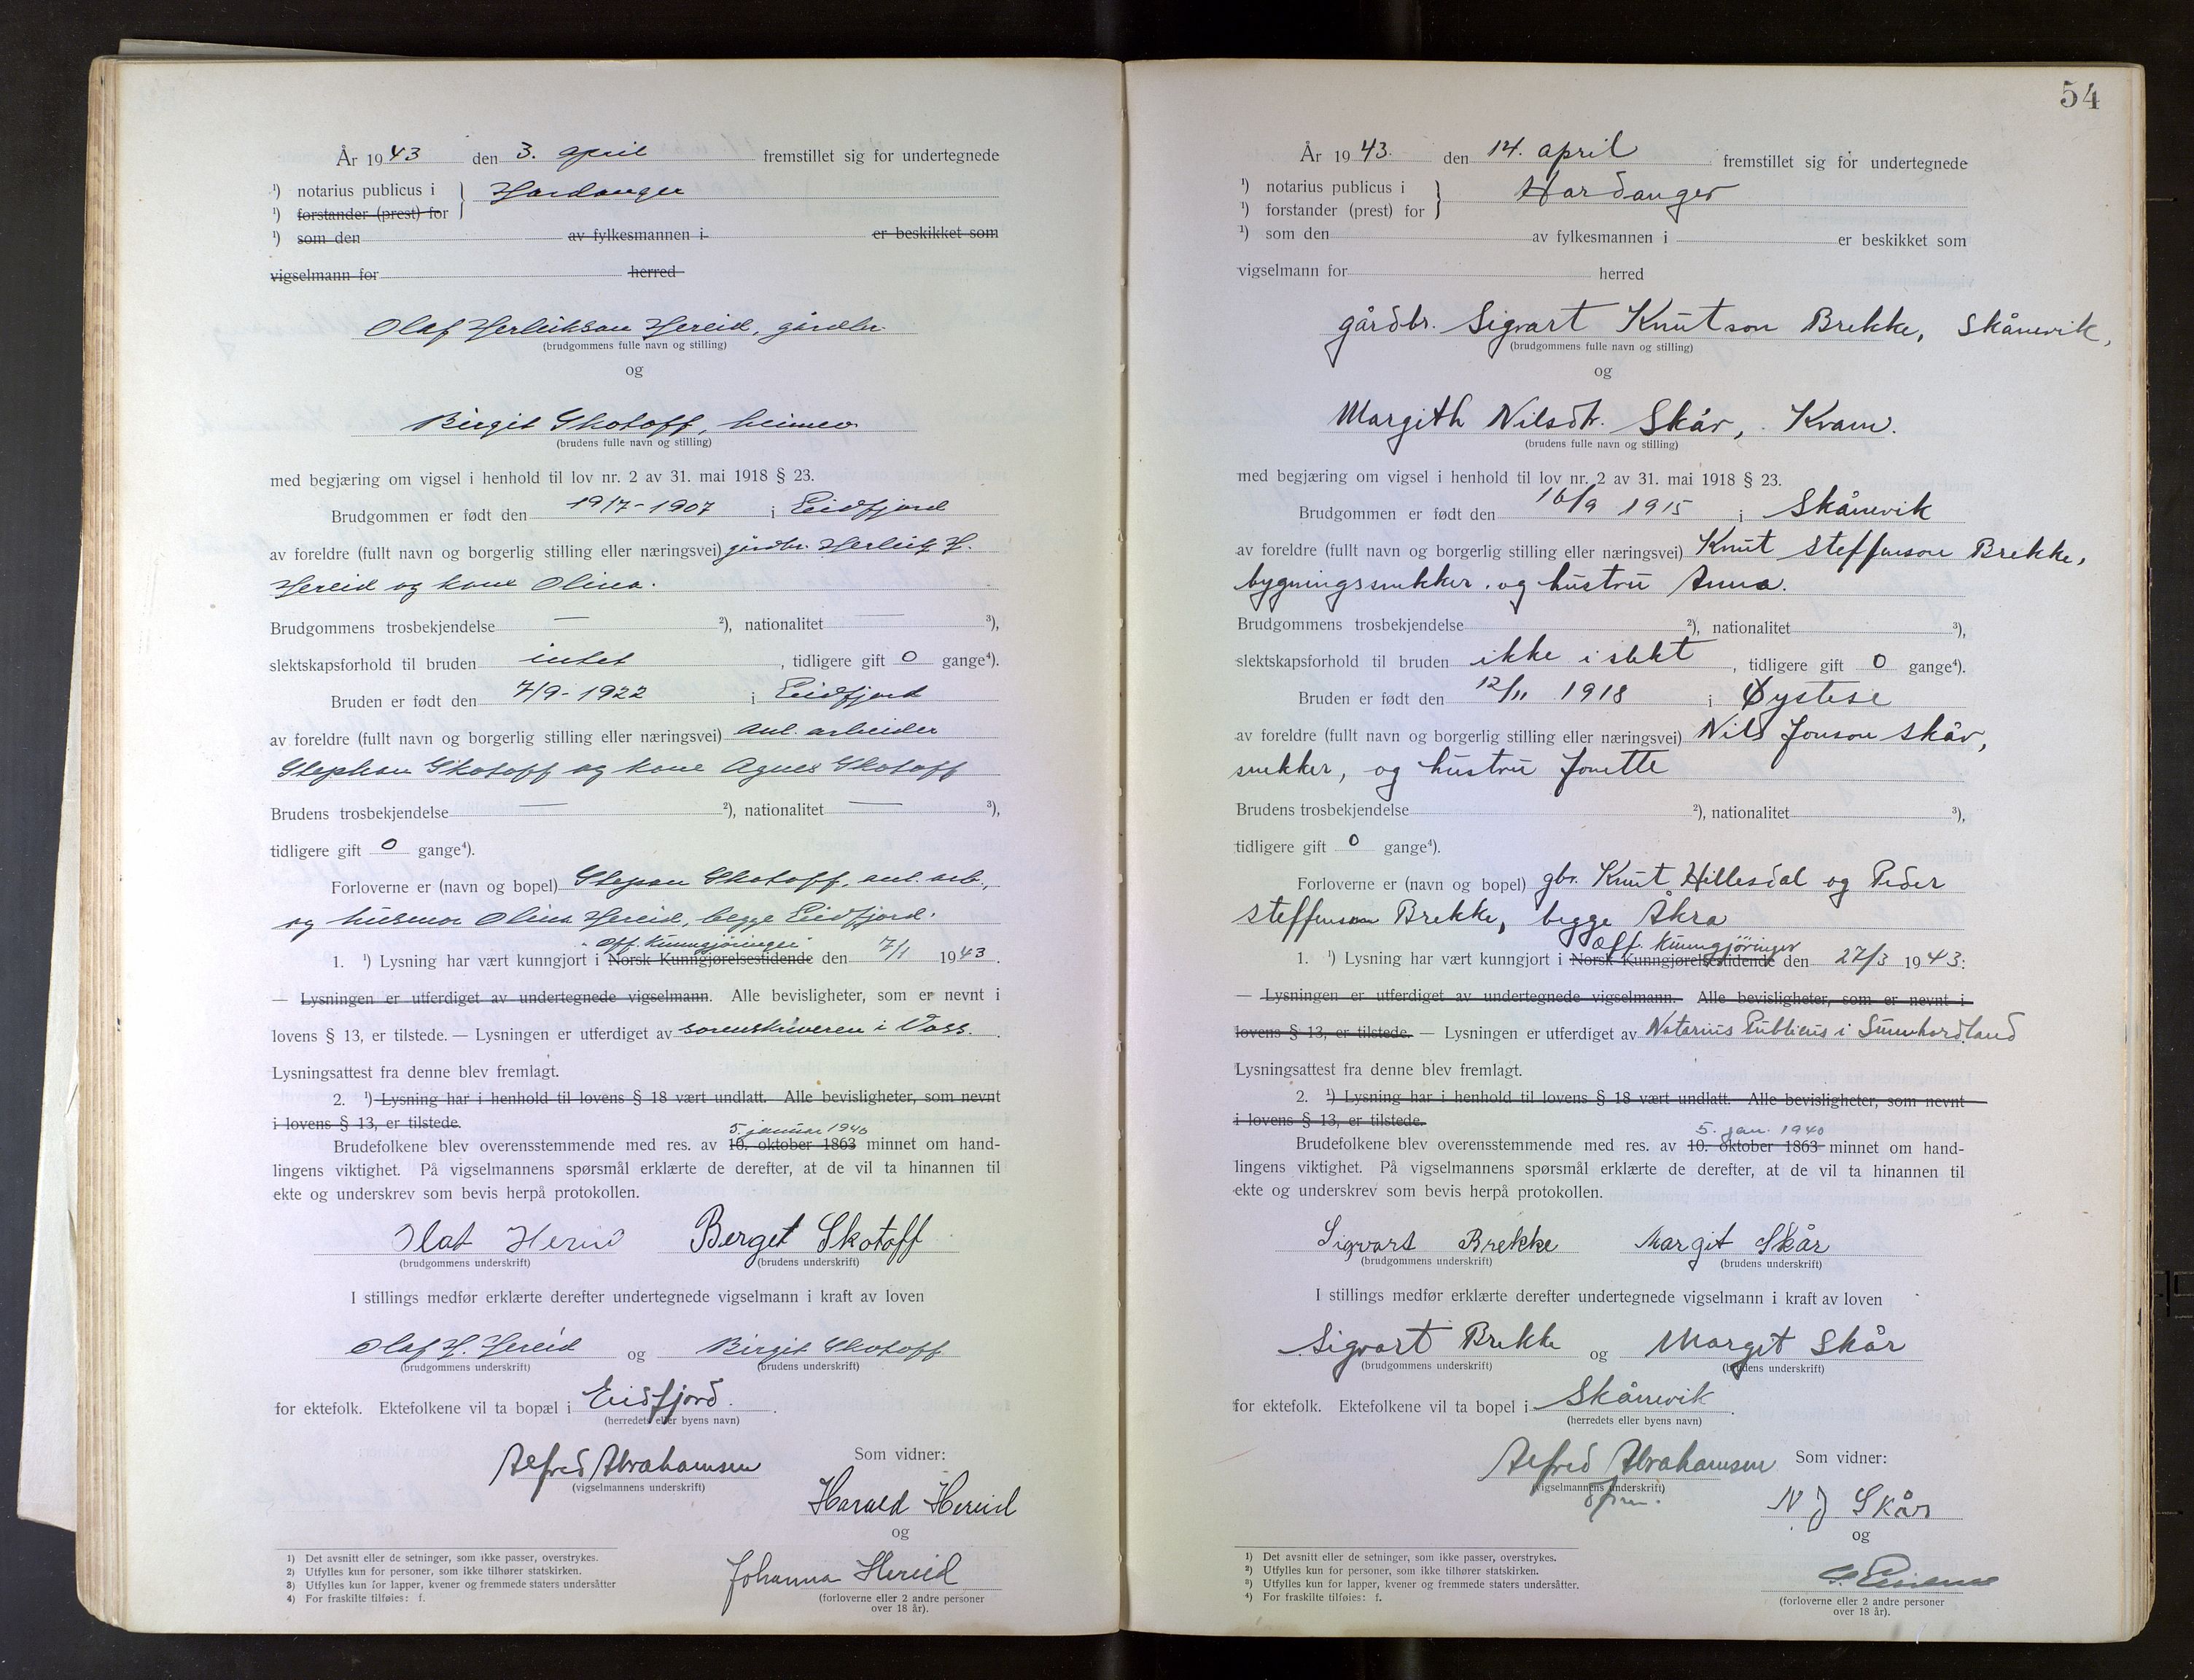 År 1943 den 3. april fremstillet sig for undertegnede
¹) notarius publicus i } Hardanger
¹) forstander (prest) for
¹) som den av fylkesmannen i er beskikket som
vigselmann for herred
Olaf Herleikson Hereid, gårdbr.
(brudgommens fulle navn og stilling)
og
Birgit Skotoff, heimev
(brudens fulle navn og stilling)
med begjæring om vigsel i henhold til lov nr. 2 av 31. mai 1918 § 23.
Brudgommen er født den 19/7-1907 i Eidfjord
av foreldre (fullt navn og borgerlig stilling eller næringsvei) gårdbr. Herleik H.
Hereid og kone Olina.
Brudgommens trosbekjendelse — ²), nationalitet — ³),
slektskapsforhold til bruden intet , tidligere gift 0 gange⁴).
Bruden er født den 7/9-1922 i Eidfjord
av foreldre (fullt navn og borgerlig stilling eller næringsvei) anl. arbeider
Stephan Skotoff og kone Agnes Skotoff
Brudens trosbekjendelse — ²), nationalitet — ³),
tidligere gift 0 gange⁴).
Forloverne er (navn og bopel) Stepan Skotoff, anl. arb.,
og husmor Olina Hereid, begge Eidfjord.
"Off. Kunngjøringer"
1. ¹) Lysning har vært kunngjort i Norsk Kunngjørelsestidende den 7/1 1943.
— Lysningen er utferdiget av undertegnede vigselmann. Alle bevisligheter, som er nevnt i
lovens § 13, er tilstede. — Lysningen er utferdiget av sorenskriveren i Voss.
Lysningsattest fra denne blev fremlagt.
2. ¹) Lysning har i henhold til lovens § 18 vært undlatt. Alle bevisligheter, som nevnt
i lovens § 13, er tilstede.
5. januar 1940
Brudefolkene blev overensstemmende med res. av 10. oktober 1863 minnet om hand-
lingens viktighet. På vigselmannens spørsmål erklærte de derefter, at de vil ta hinannen til
ekte og underskrev som bevis herpå protokollen.
Olaf Hereid Berget Skotoff
(brudgommens underskrift) (brudens underskrift)
I stillings medfør erklærte derefter undertegnede vigselmann i kraft av loven
Olaf H. Hereid og Birgit Skotoff
(brudgommens underskrift) (brudens underskrift)
for ektefolk. Ektefolkene vil ta bopæl i Eidfjord.
(herredets eller byens navn)
Alfred Abrahamsen Som vidner:
(vigselmannens underskrift)
Harald Hereid
og
Johanna Hereid
(forloverne eller 2 andre personer
over 18 år).
1) Det avsnitt eller de setninger, som ikke passer, overstrykes.
2) Utfylles kun for personer, som ikke tilhører statskirken.
3) Utfylles kun for lapper, kvener og fremmede staters undersåtter
4) For fraskilte tilføies: f.
54
År 1943. den 14. april fremstillet sig for undertegnede
¹) notarius publicus i } Hardanger
¹) forstander (prest) for
¹) som den av fylkesmannen i er beskikket som
vigselmann for herred
gårdbr. Sigvart Knutson Brekke, Skånevik,
(brudgommens fulle navn og stilling)
og
Margith Nilsdtr. Skår, Kvam.
(brudens fulle navn og stilling)
med begjæring om vigsel i henhold til lov nr. 2 av 31. mai 1918 § 23.
Brudgommen er født den 16/9 1915 i Skånevik
av foreldre (fullt navn og borgerlig stilling eller næringsvei) Knut Steffenson Brekke,
bygningssnekker. og hustru Anna.
Brudgommens trosbekjendelse ²), nationalitet ³),
slektskapsforhold til bruden ikke i slekt , tidligere gift 0 gange⁴).
Bruden er født den 12/11 1918 i Øystese
av foreldre (fullt navn og borgerlig stilling eller næringsvei) Nils Jonson Skår,
snekker, og hustru Jonette
Brudens trosbekjendelse ²), nationalitet ³),
tidligere gift 0 gange⁴).
Forloverne er (navn og bopel) gbr. Knut Hillesdal og Peder
Steffenson Brekke, begge Åkra
Off. Kunngjøringer
1. ¹) Lysning har vært kunngjort i Norsk Kunngjørelsestidende den 27/3 1943:
— Lysningen er utferdiget av undertegnede vigselmann. Alle bevisligheter, som er nevnt i
lovens § 13, er tilstede. — Lysningen er utferdiget av Notarius Publicus i Sunnhordland
Lysningsattest fra denne blev fremlagt.
2. ¹) Lysning har i henhold til lovens § 18 vært undlatt. Alle bevisligheter, som nevnt
i lovens § 13, er tilstede.
5. jan. 1940
Brudefolkene blev overensstemmende med res. av 10. oktober 1863 minnet om hand-
lingens viktighet. På vigselmannens spørsmål erklærte de derefter, at de vil ta hinannen til
ekte og underskrev som bevis herpå protokollen.
Sigvart Brekke Margit Skår
(brudgommens underskrift) (brudens underskrift)
I stillings medfør erklærte derefter undertegnede vigselmann i kraft av loven
Sigvart Brekke og Margit Skår
(brudgommens underskrift) (brudens underskrift)
for ektefolk. Ektefolkene vil ta bopel i Skånevik
(herredets eller byens navn)
Alfred Abrahamsen Som vidner:
(vigselmannens underskrift)
N J Skår
og
(forloverne eller 2 andre personer
over 18 år).
1) Det avsnitt eller de setninger, som ikke passer, overstrykes.
2) Utfylles kun for personer, som ikke tilhører statskirken.
3) Utfylles kun for lapper, kvener og fremmede staters undersåtter.
4) For fraskilte tilføies: f.